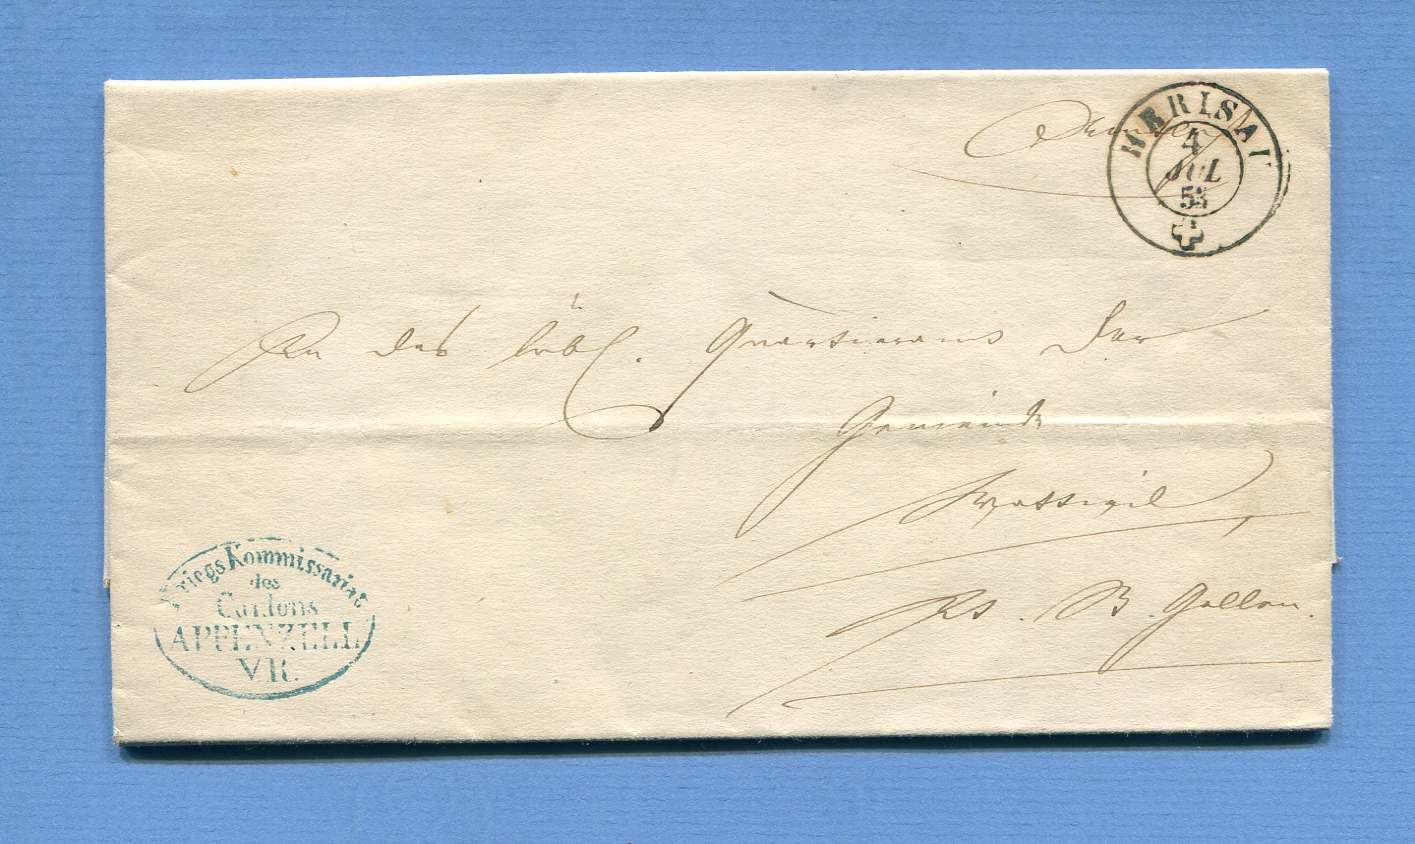 HERISAU
4
JUL
53
An das löbl. Quartieramt der
Gemeinde
Wattwil
Kt. St. Gallen.
Kriegs Kommissariat
des
Cantons
APPENZELL
VR.